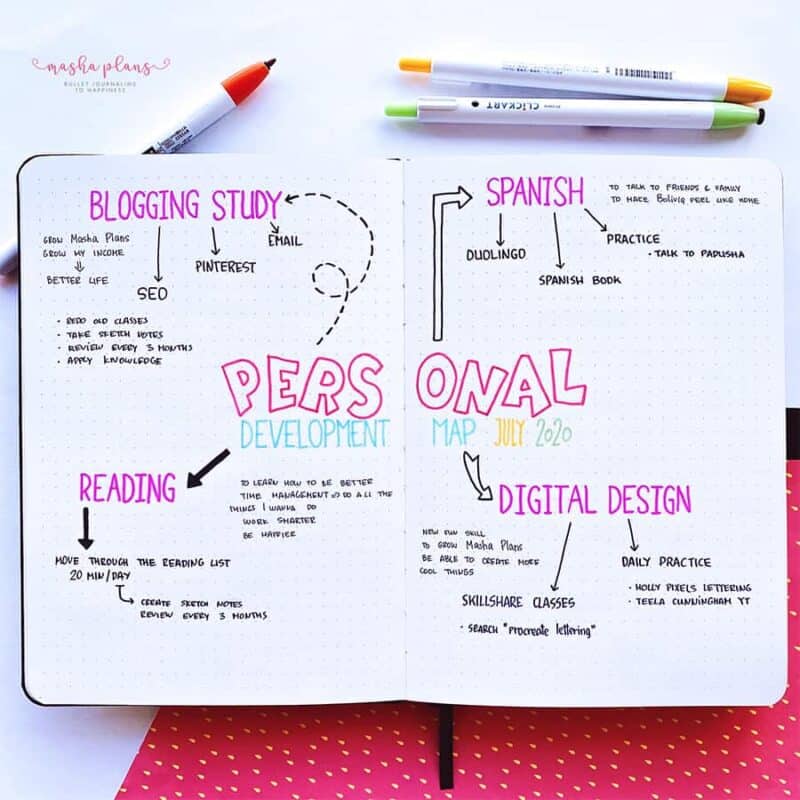 masha plans
BULLET JOURNALING
TO HAPPINESS
CLiCKART
BLOGGING STUDY
GROW Masha Plans
GROW MY INCOME
BETTER LIFE
SEO
PINTEREST
EMAIL
• REDO OLD CLASSES
• TAKE SKETCH NOTES
• REVIEW EVERY 3 MONTHS
• APPLY KNOWLEDGE
SPANISH
TO TALK TO FRIENDS & FAMILY
TO MAKE Bolivia FEEL LIKE HOME
DUOLINGO
SPANISH BOOK
PRACTICE
• TALK TO PADUSHA
PERSONAL
DEVELOPMENT MAP JULY 2020
READING
TO LEARN HOW TO BE BETTER
TIME MANAGEMENT => DO ALL THE
THINGS I WANNA DO
WORK SMARTER
BE HAPPIER
MOVE THROUGH THE READING LIST
20 MIN/DAY
CREATE SKETCH NOTES
REVIEW EVERY 3 MONTHS
DIGITAL DESIGN
NEW FUN SKILL
TO GROW Masha Plans
BE ABLE TO CREATE MORE
COOL THINGS
SKILLSHARE CLASSES
• SEARCH "procreate lettering"
DAILY PRACTICE
• HOLLY PIXELS LETTERING
• TEELA CUNNINGHAM YT